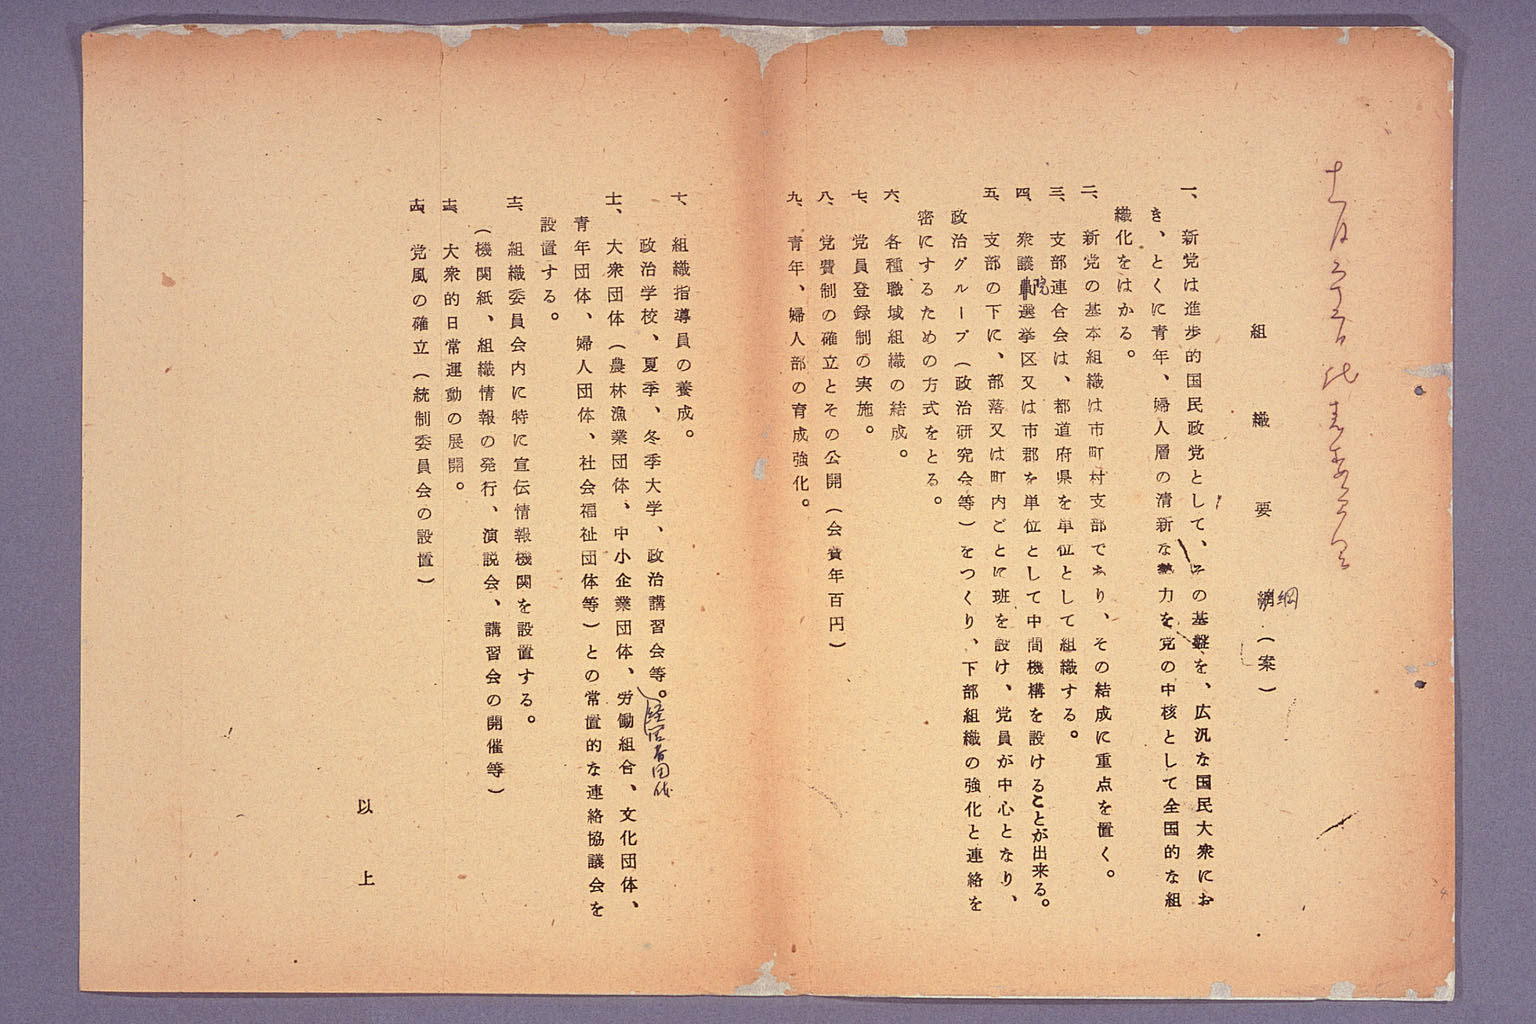 組織要綱（案）
一、新党は進歩的国民政党として、その基盤を、広汎な国民大衆にお
き、とくに青年、婦人層の清新な熱力を党の中核として全国的な組
織化をはかる。
二、新党の基本組織は市町村支部であり、その結成に重点を置く。
三、支部連合会は、都道府県を単位として組織する。
四、衆議院選挙区又は市郡を単位として中間機構を設けることが出来る。
五、支部の下に、部落又は町内ごとに班を設け、党員が中心となり、
政治グループ（政治研究会等）をつくり、下部組織の強化と連絡を
密にするための方式をとる。
六、各種職域組織の結成。
七、党員登録制の実施。
八、党費制の確立とその公開（会費年百円）
九、青年、婦人部の育成強化。
十、組織指導員の養成。
政治学校、夏季、冬季大学、政治講習会等。
経営者団体
十一、大衆団体（農林漁業団体、中小企業団体、労働組合、文化団体、
青年団体、婦人団体、社会福祉団体等）との常置的な連絡協議会を
設置する。
十二、組織委員会内に特に宣伝情報機関を設置する。
（機関紙、組織情報の発行、演説会、講習会の開催等）
十三、大衆的日常運動の展開。
十四、党風の確立（統制委員会の設置）
以上